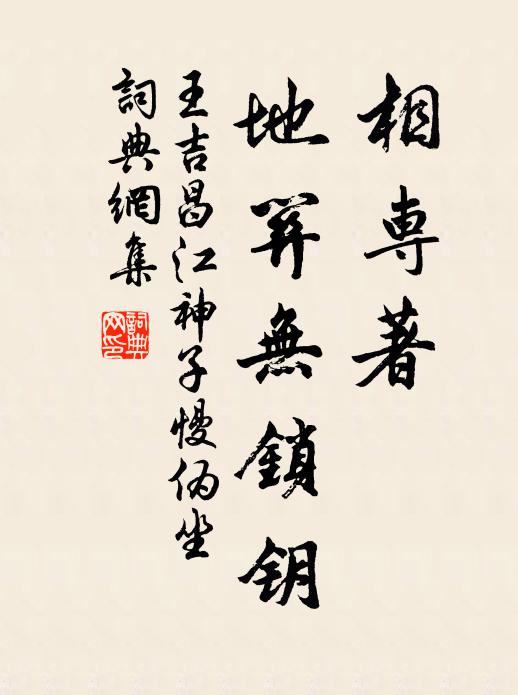 相専著
地無鎖鈅
王吉昌江神子慢偽坐
詞典網集
詞典网印